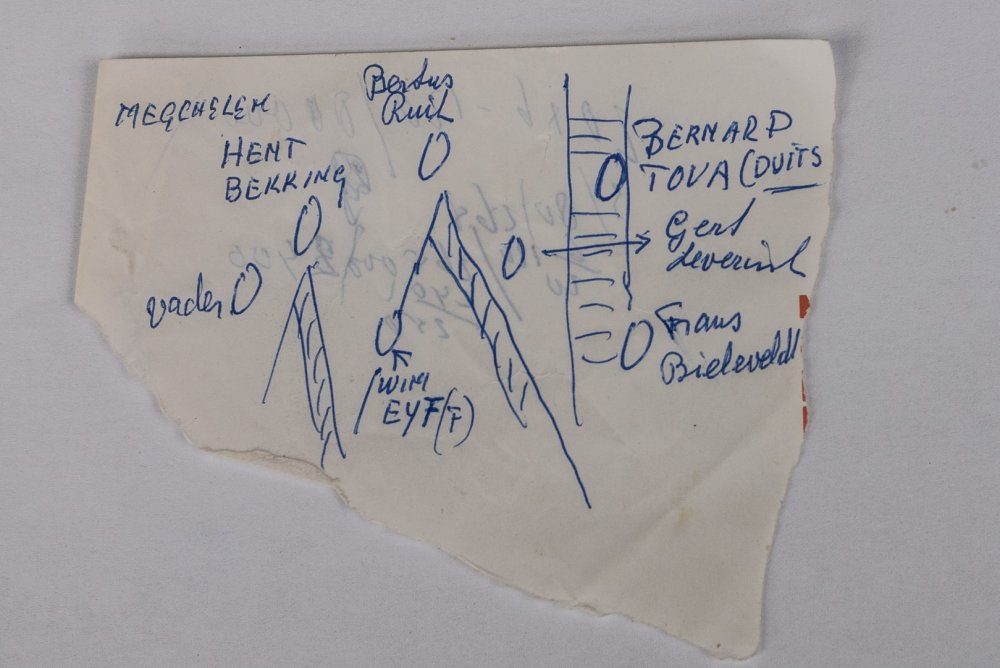 MEGCHELEM
Bertus
Ruil
HENT
BEKKING
BERNARD
TOVA (DUITS
Gert
Leverink
vader
Frans
Bieleveldt
WIM
EYF(F)